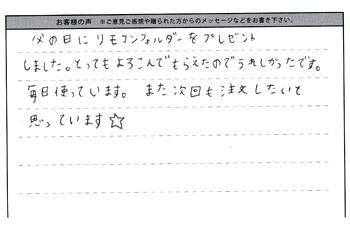 お客様の声 ※ご意見ご感想や贈られた方からのメッセージなどをお書き下さい。
父の日にリモコンフォルダーをプレゼント
しました。とってもよろこんでもらえたのでうれしかったです。
毎日使っています。また次回も注文したいと
思っています☆